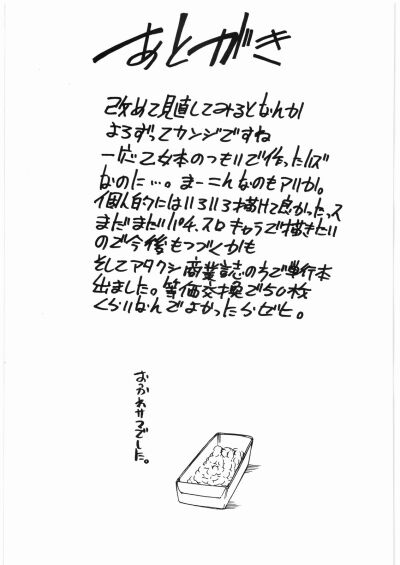 あとがき
改めて見直してみるとなんか
よろずってカンジですね
一応乙女本のつもりで作ったハズ
なのに…。まーこんなのもアリか。
個人的にはいろいろ描けて良かったっス
まだまだパチ、スロキャラで描きたい
ので今後もつづくかも
そしてアタクシ商業誌のちで単行本
出ました。等価交換で50枚
くらいなんでよかったらぜひ。
おつかれサマでした。